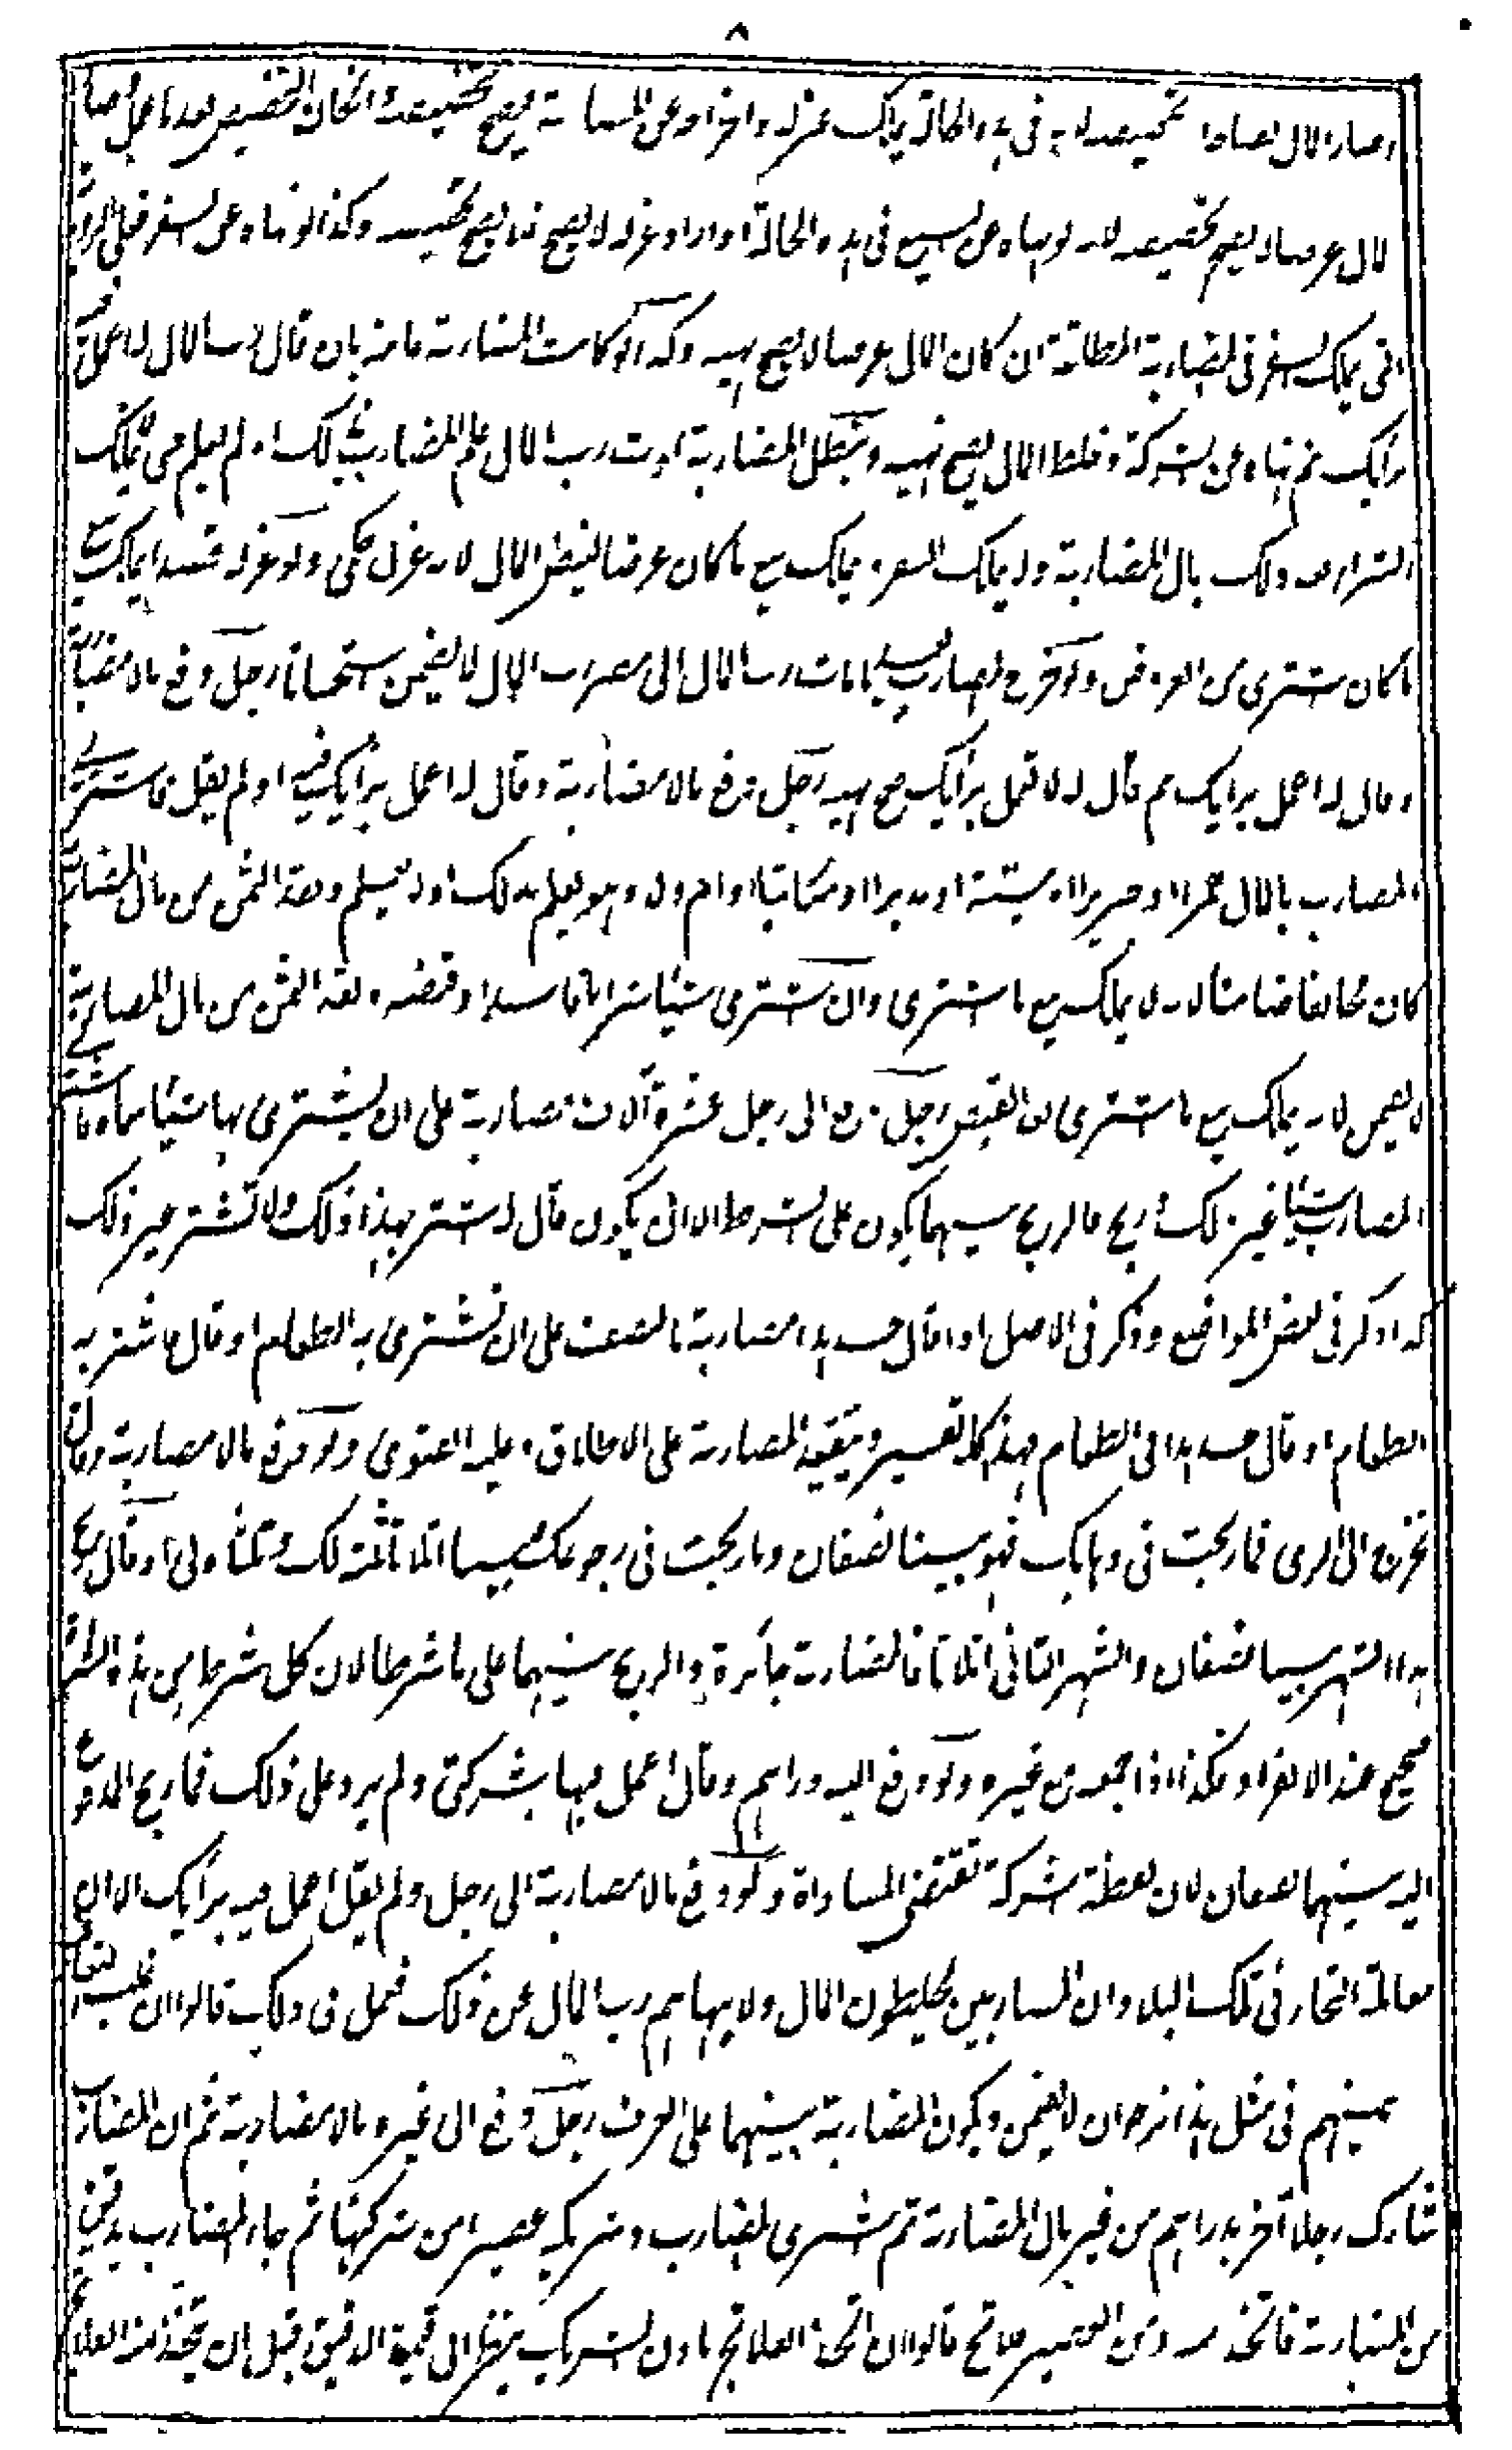 ٨
وصار المال نضا يصح تخصيصه لانه فى هذه الحالة يملك عزله واخراجه عن المضاربة فيصح تخصيصه وانكان التخصيص بعد ما صار
المال عرضا لا يصح تخصيصه لانه لو نهاه عن البيع فى هذه الحالة او اراد عزله لا يصح فلا يصح تخصيصه وكذا لو نهاه عن السفر فعلى الرواية
التى يملك السفر فى المضاربة المطلقة ان كان المال عرضا لا يصح نهيه وكذا لو كانت المضاربة عامة بان قال رب المال له اعمل فيه
برأيك ثم نهاه عن الشركة وخلط المال يصح نهيه وتبطل المضاربة بموت رب المال علم المضارب بذلك او لم يعلم حتى لا يملك
الشراء بعد ذلك بمال المضاربة ولا يملك السفر ويملك بيع ما كان عرضا لينض المال لانه عزل حكمى ولو عزله قصدا يملك بيع
ما كان اشترى من العروض ولو خرج المضارب بعد ما مات رب المال الى مصر رب المال لا يضمن استحسانا رجل دفع مالا مضاربة
وقال له اعمل برأيك ثم قال له لا تعمل برأيك صح نهيه رجل دفع مالا مضاربة وقال له اعمل برأيك فيه او لم يقل فاشترى
المضارب بالمال خمرا او خنزيرا او ميتة او مدبرا او مكاتبا او ام ولد وهو يعلم بذلك او لا يعلم ونقد الثمن من مال المضاربة
كان مخالفا ضامنا لانه لا يملك بيع ما اشترى وان اشترى شيئا شراء فاسدا وقبضه ونقد الثمن من مال المضاربة
لا يضمن لانه يملك بيع ما اشترى بعد القبض رجل دفع الى رجل عشرة آلاف مضاربة على ان يشترى بها شيئا سماه فاشترى
المضارب شيئا غير ذلك وربح فالربح بينهما يكون على الشرط الا ان يكون قال له اشتر بهذا ذلك ولا تشتر غير ذلك
كذا ذكر فى بعض المواضع وذكر فى الاصل اذا قال خذ هذا مضاربة بالنصف على ان تشترى به الطعام او قال فاشتر به
الطعام او قال خذ هذا فى الطعام فهذا كله تفسير وتبقى المضاربة على الاطلاق وعليه الفتوى ولو دفع مالا مضاربة وقال
تخرج الى الرى فما ربحت فى ذهابك فهو بيننا نصفان وما ربحت فى رجوعك بيننا اثلاثا ثلثه لك وثلثاه لى او قال ربح
هذا الشهر بيننا نصفان والشهر الثانى اثلاثا فالمضاربة جائزة والربح بينهما على ما شرطا لان كل شرط من هذه الشروط
صحيح عند الانفراد فكذا اذا جمعه مع غيره ولو دفع اليه دراهم وقال اعمل فيها بشركتى ولم يزد على ذلك فما ربح المدفوع
اليه بينهما نصفان لان لفظة شركة تقتضى المساواة ولو دفع مالا مضاربة الى رجل ولم يقل اعمل فيه برأيك الا ان
معاملة التجار فى تلك البلاد ان المضاربين يخلطون المال ولا ينهاهم رب المال عن ذلك فعمل فى ذلك قالوا ان غلب التعارف
بينهم فى مثل هذا نرجو ان لا يضمن ويكون المضاربة بينهما على العرف رجل دفع الى غيره مالا مضاربة ثم ان المضارب
شارك رجلا آخر بدراهم من غير مال المضاربة ثم اشترى المضارب وشريكه عصيرا من شركتهما ثم جاء المضارب بدقيق
من المضاربة فاتخذ منه ومن العصير فلاتج قالوا ان اتخذ الفلاتج باذن الشريك ينظر الى قيمة الدقيق قبل ان يتخذ منه الفلاتج